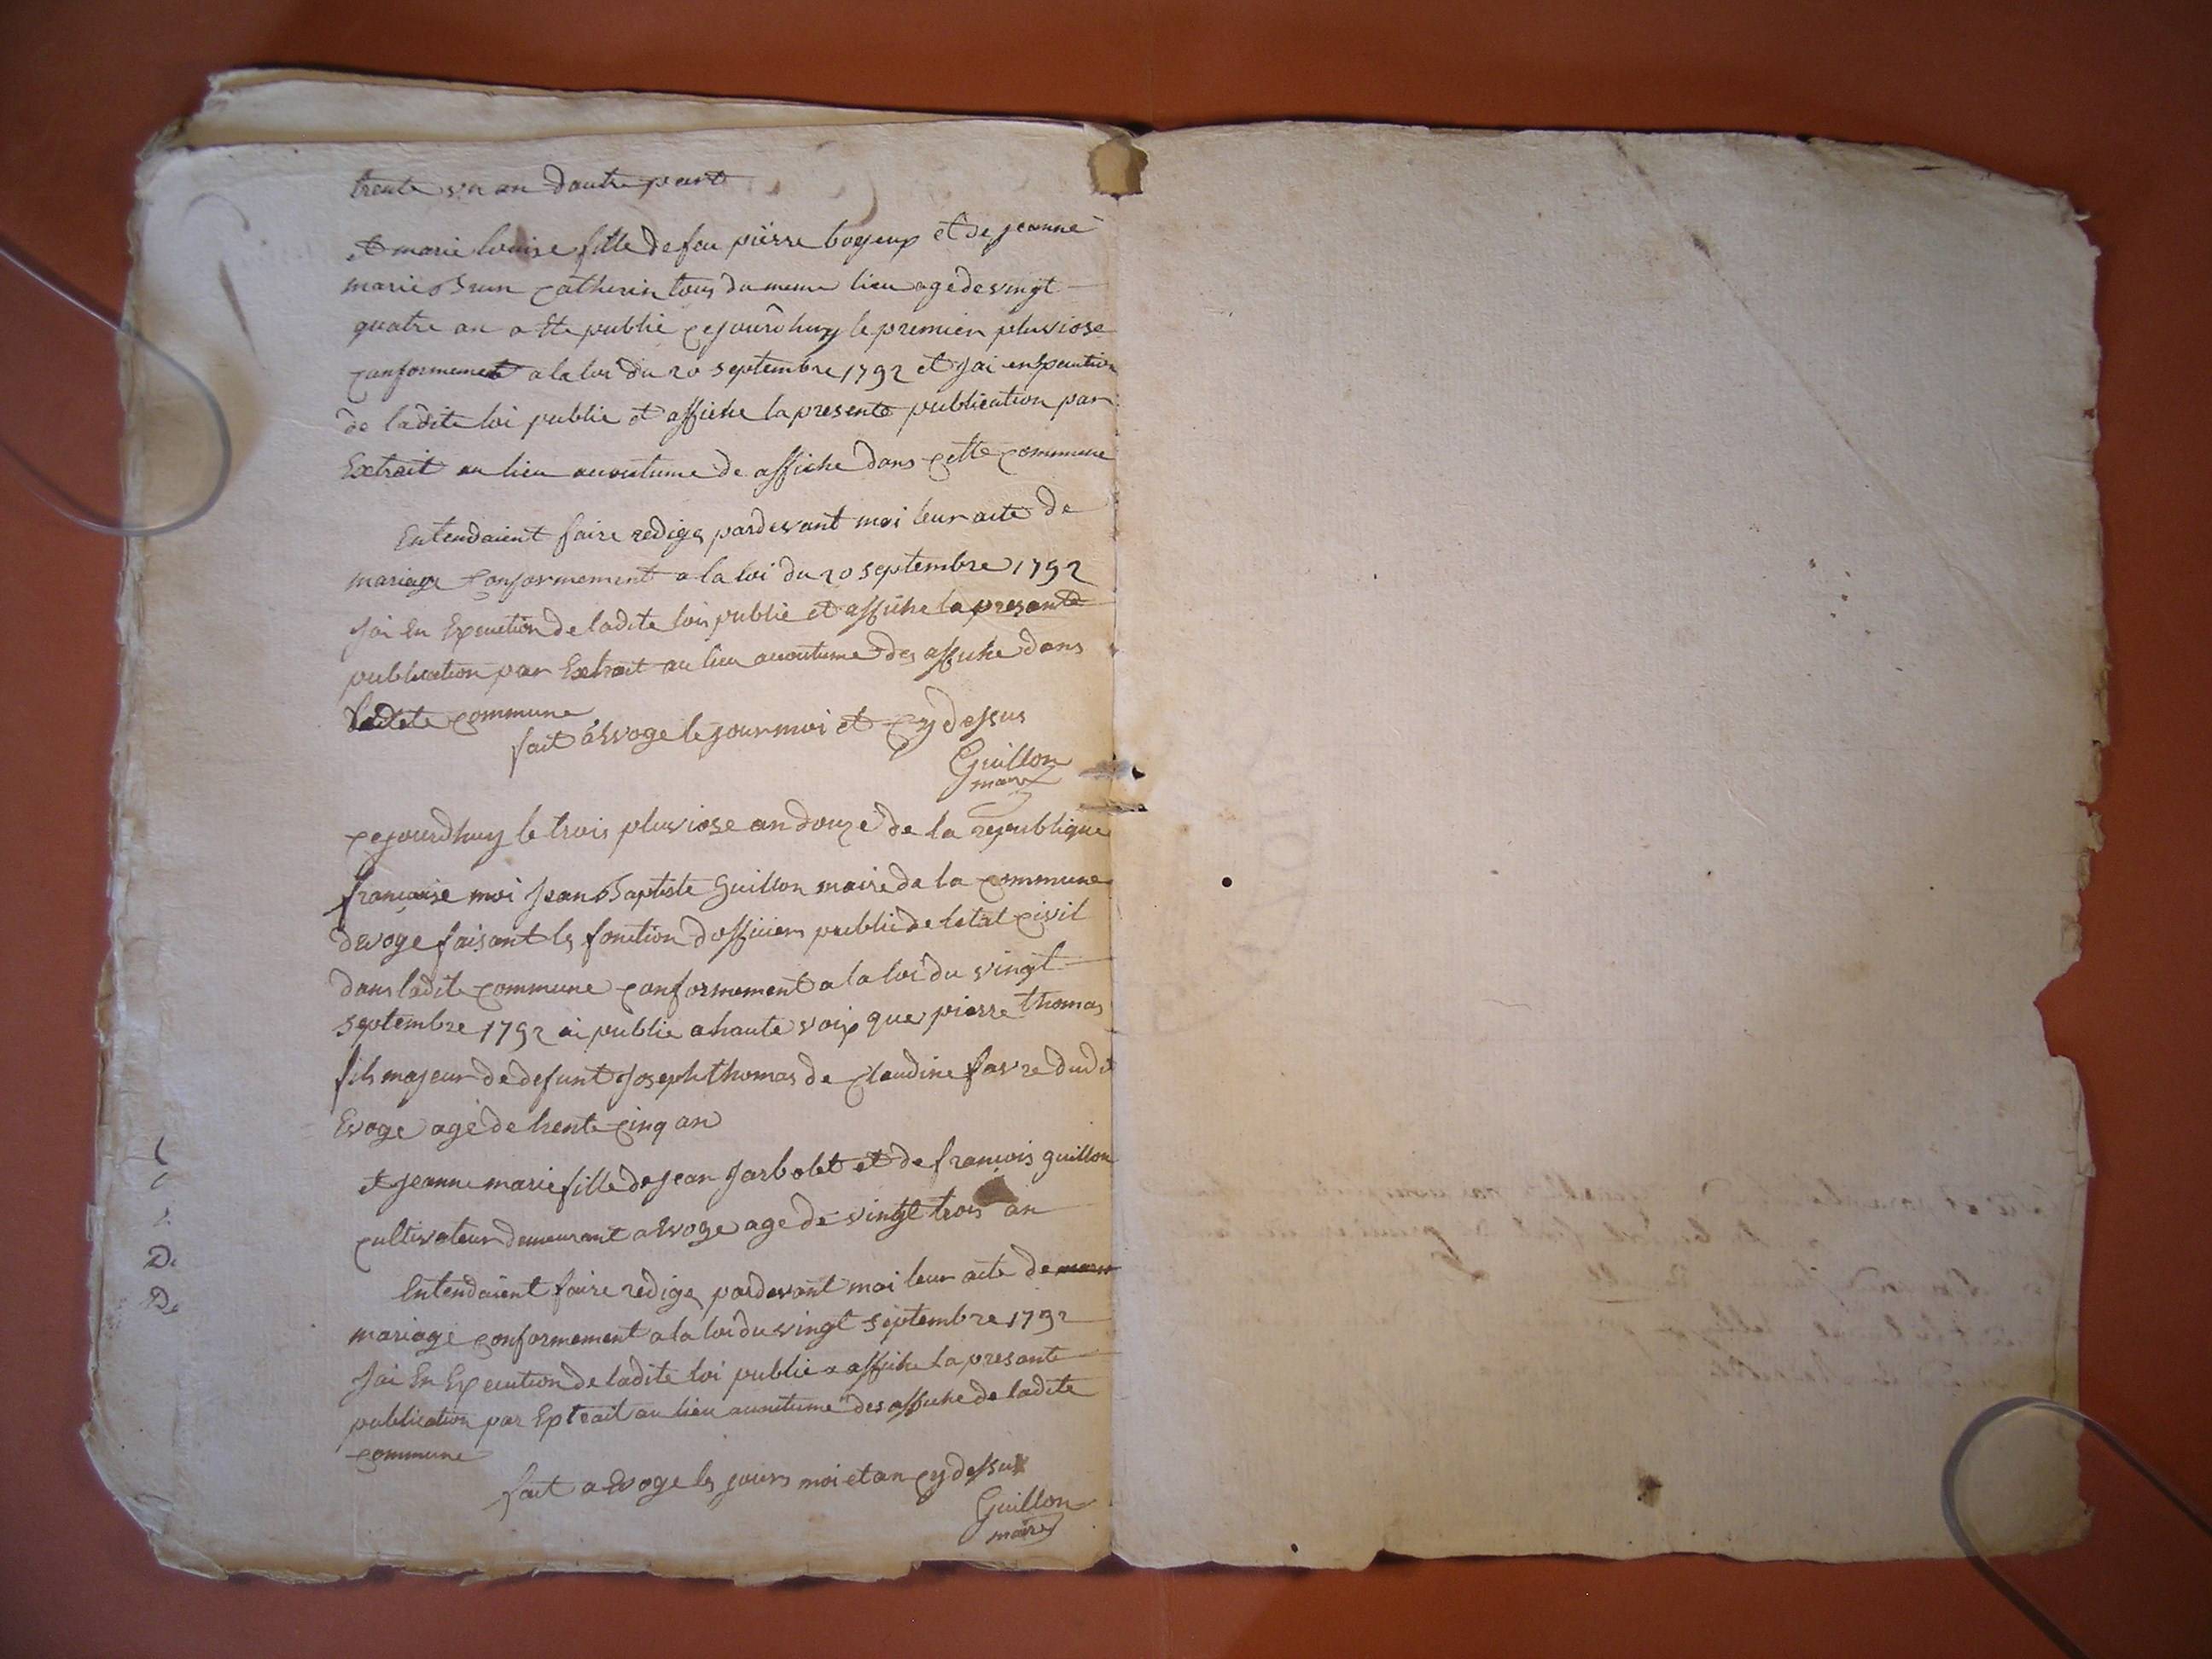 trente un an dautre part
et marie louise fille de feu pierre boyeux et de jeanne
marie Brun catherin tous du meme lieu age de vingt
quatre an a ete publie cejourdhuy le premier pluviose
conformement a la loi du 20 septembre 1792 et jai en execution
de ladite loi publie et affiche la presente publication par
Extrait au lieu accoutume de affiche dans cette commune
Entendaient faire redige pardevant moi leur acte de
mariage conformement a la loi du 20 septembre 1792
jai En Execution de ladite loi publie et affiche la presante
publication par Extrait au lieu accoutume des affiche dans
ladite commune
fait a Evoge le jour moi et cy dessus
Guillon
maire
cejourdhuy le trois pluviose an douze de la republique
francaise moi Jean Baptiste Guillon maire de la commune
devoge faisant les fonction dofficier public de letat civil
dans ladite commune conformement a la loi du vingt
septembre 1792 ai publie a haute voix que pierre thomas
fils majeur de defunt joseph thomas de claudine favre dudit
Evoge age de trente cinq an
et jeanne marie fille de jean jarbolet et de francois guillon
cultivateur demeurant a Evoge age de vingt trois an
Entendaient faire redige pardevant moi leur acte de
mariage conformement a la loi du vingt septembre 1792
jai En Execution de ladite loi publie a affiche la presante
publication par Extrait au lieu accoutume des affiche de ladite
commune
fait a Evoge les jours moi et an cy dessus
Guillon
maire
De
De